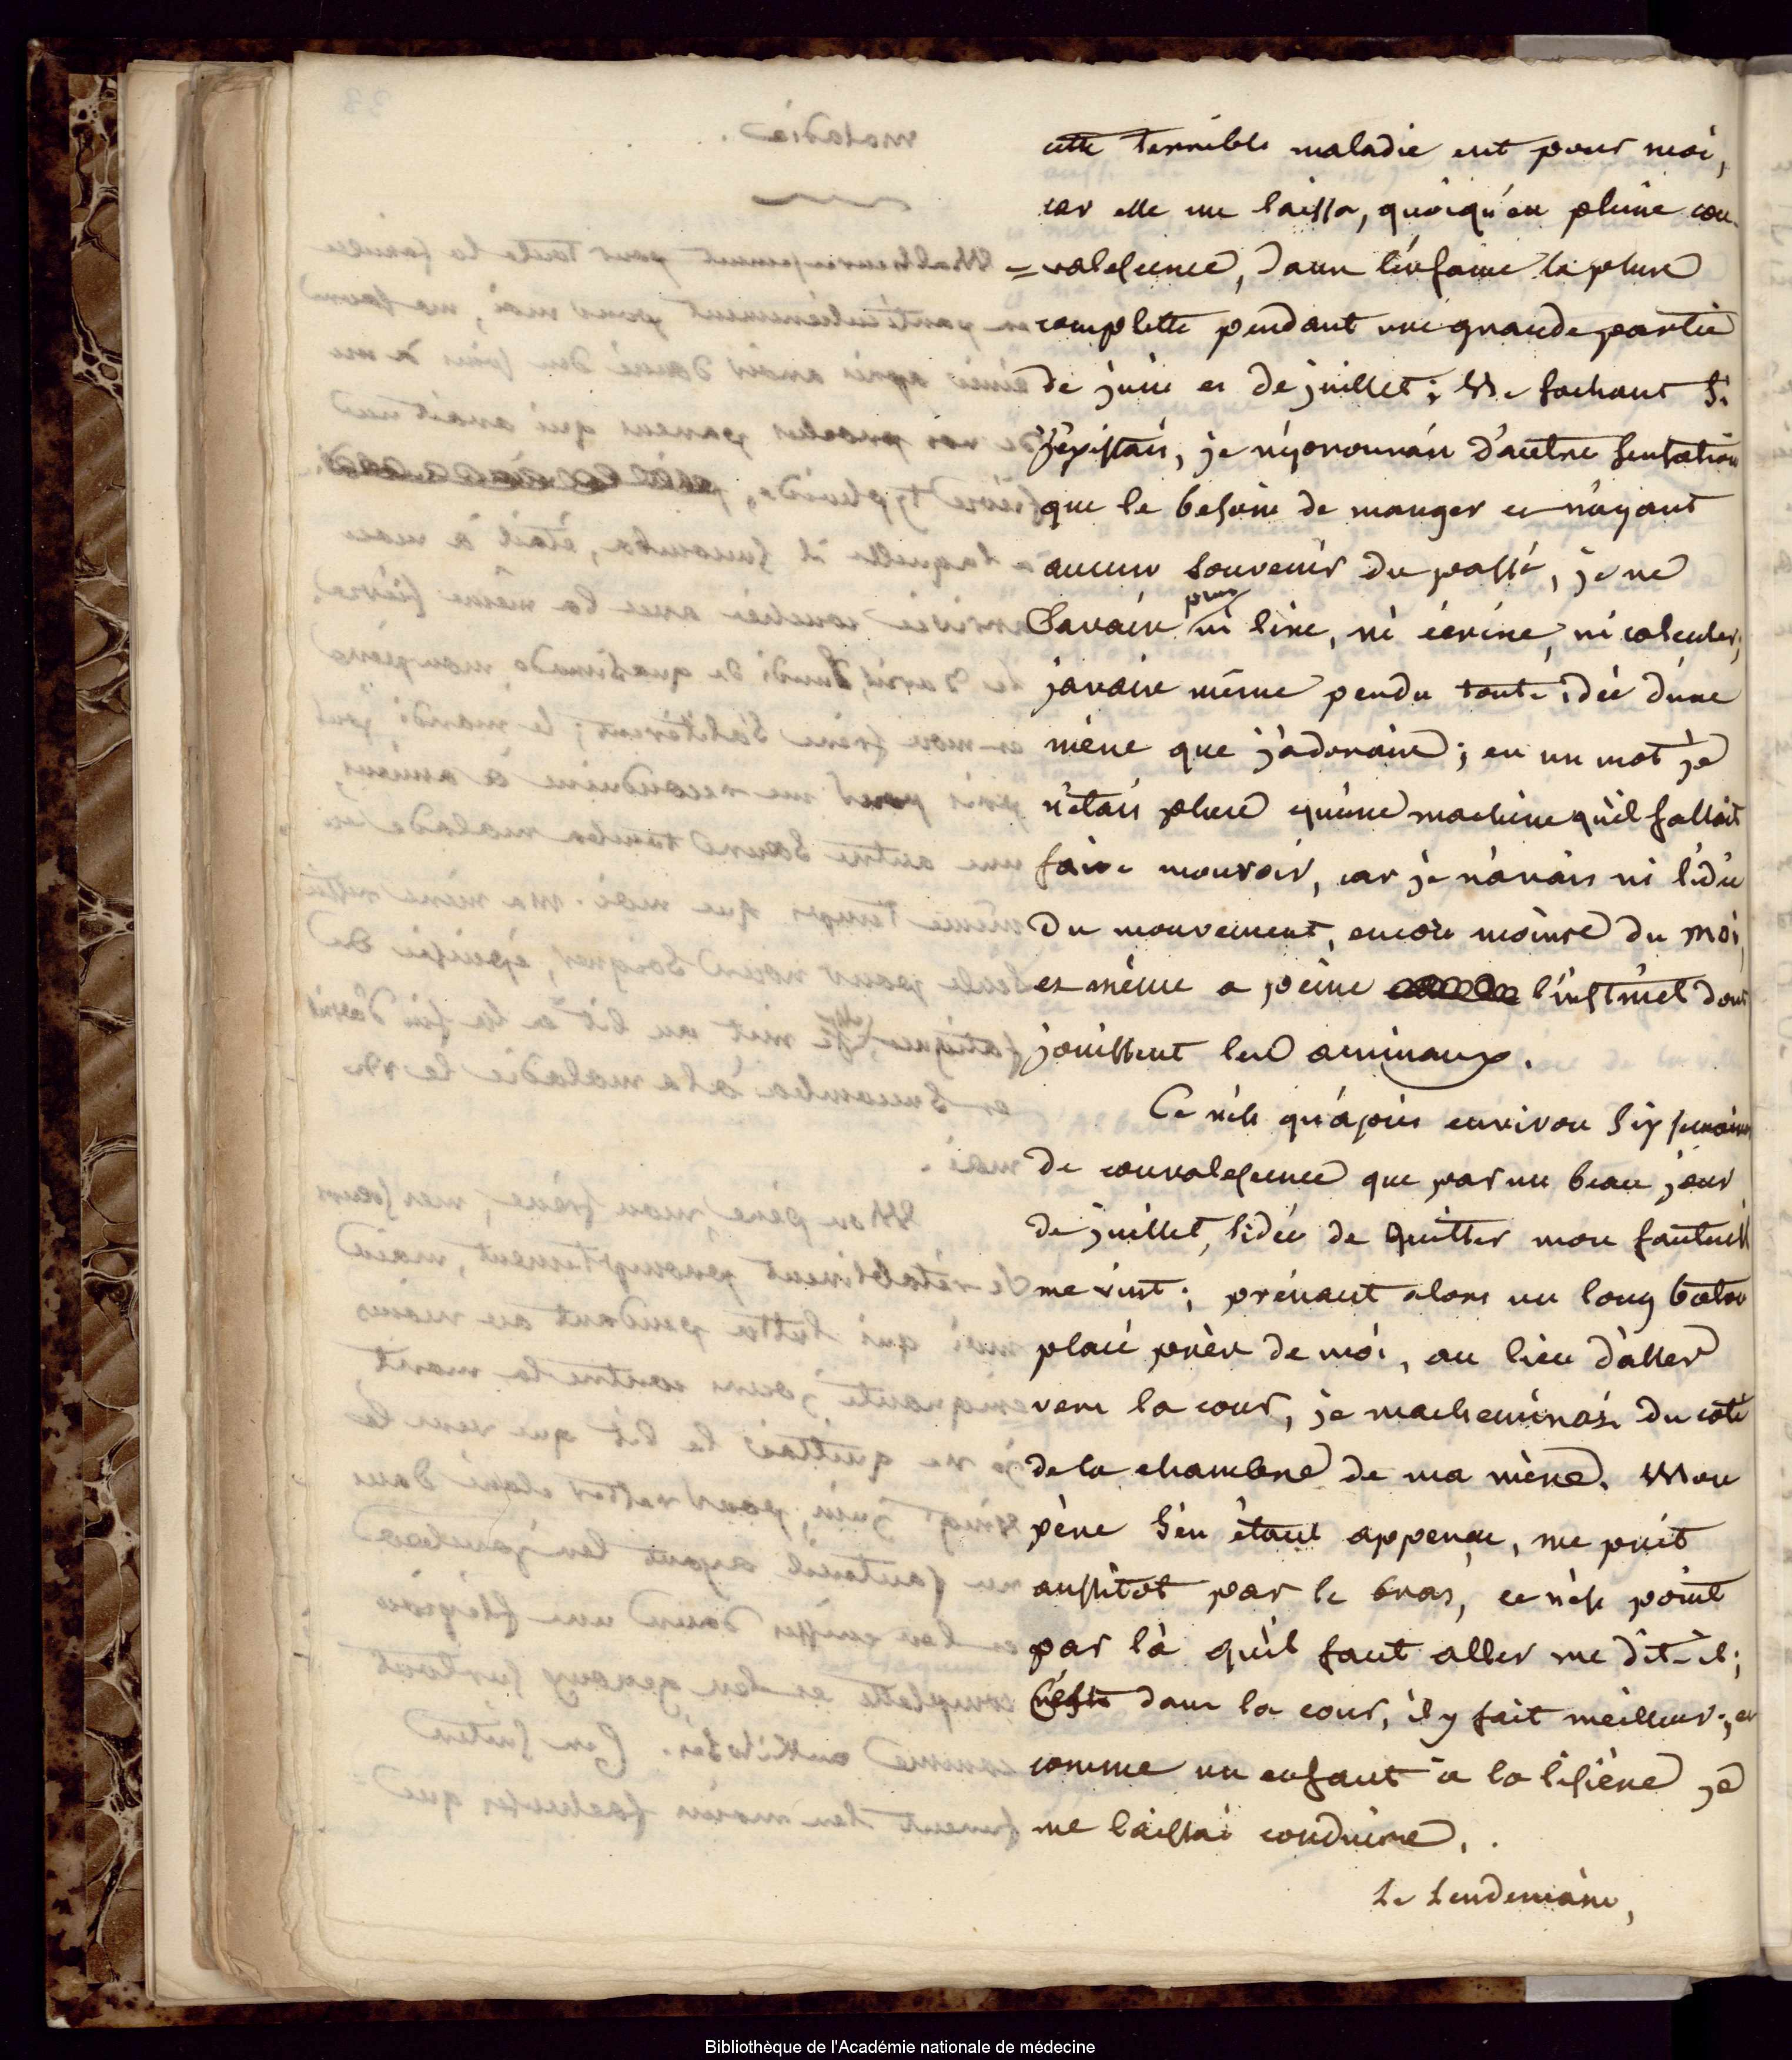 cette terrible maladie eut pour moi,
car elle me laissa, quoiqu'en pleine con-
=valescence, dans l'enfance la plus
complette pendant une grande partie
de juin et de juillet; Ne sachant si
j'existais, je n'éprouvais d'autre sensation
que le besoin de manger et n'ayant
aucun souvenir du passé, je ne
savais plus ni lire, ni écrire, ni calculer;
j'avais même perdu toute idée d'une
mère que j'adorais; en un mot je
n'étais plus qu'une machine qu'il fallait
faire mouvoir, car je n'avais ni l'idée
du mouvement, encore moins du moi,
et même a peine l'instinct dont
jouissent les animaux.
Ce n'est qu'après environ six semaines
de convalescence que par un beau jour
de juillet, l'idée de quitter mon fauteuil
me vint; prenant alors un long bâton
placé près de moi, au lieu d'aller
vers la cour, je m'acheminai du coté
de la chambre de ma mère. Mon
père s'en étant apperçu, me prit
aussitôt par le bras, ce n'est point
par là qu'il faut aller me dit-il;
dans la cour, il y fait meilleur; et
comme un enfant à la lisière je
me laissai conduire.
Le lendemain,
Bibliothèque de l'Académie nationale de médecine